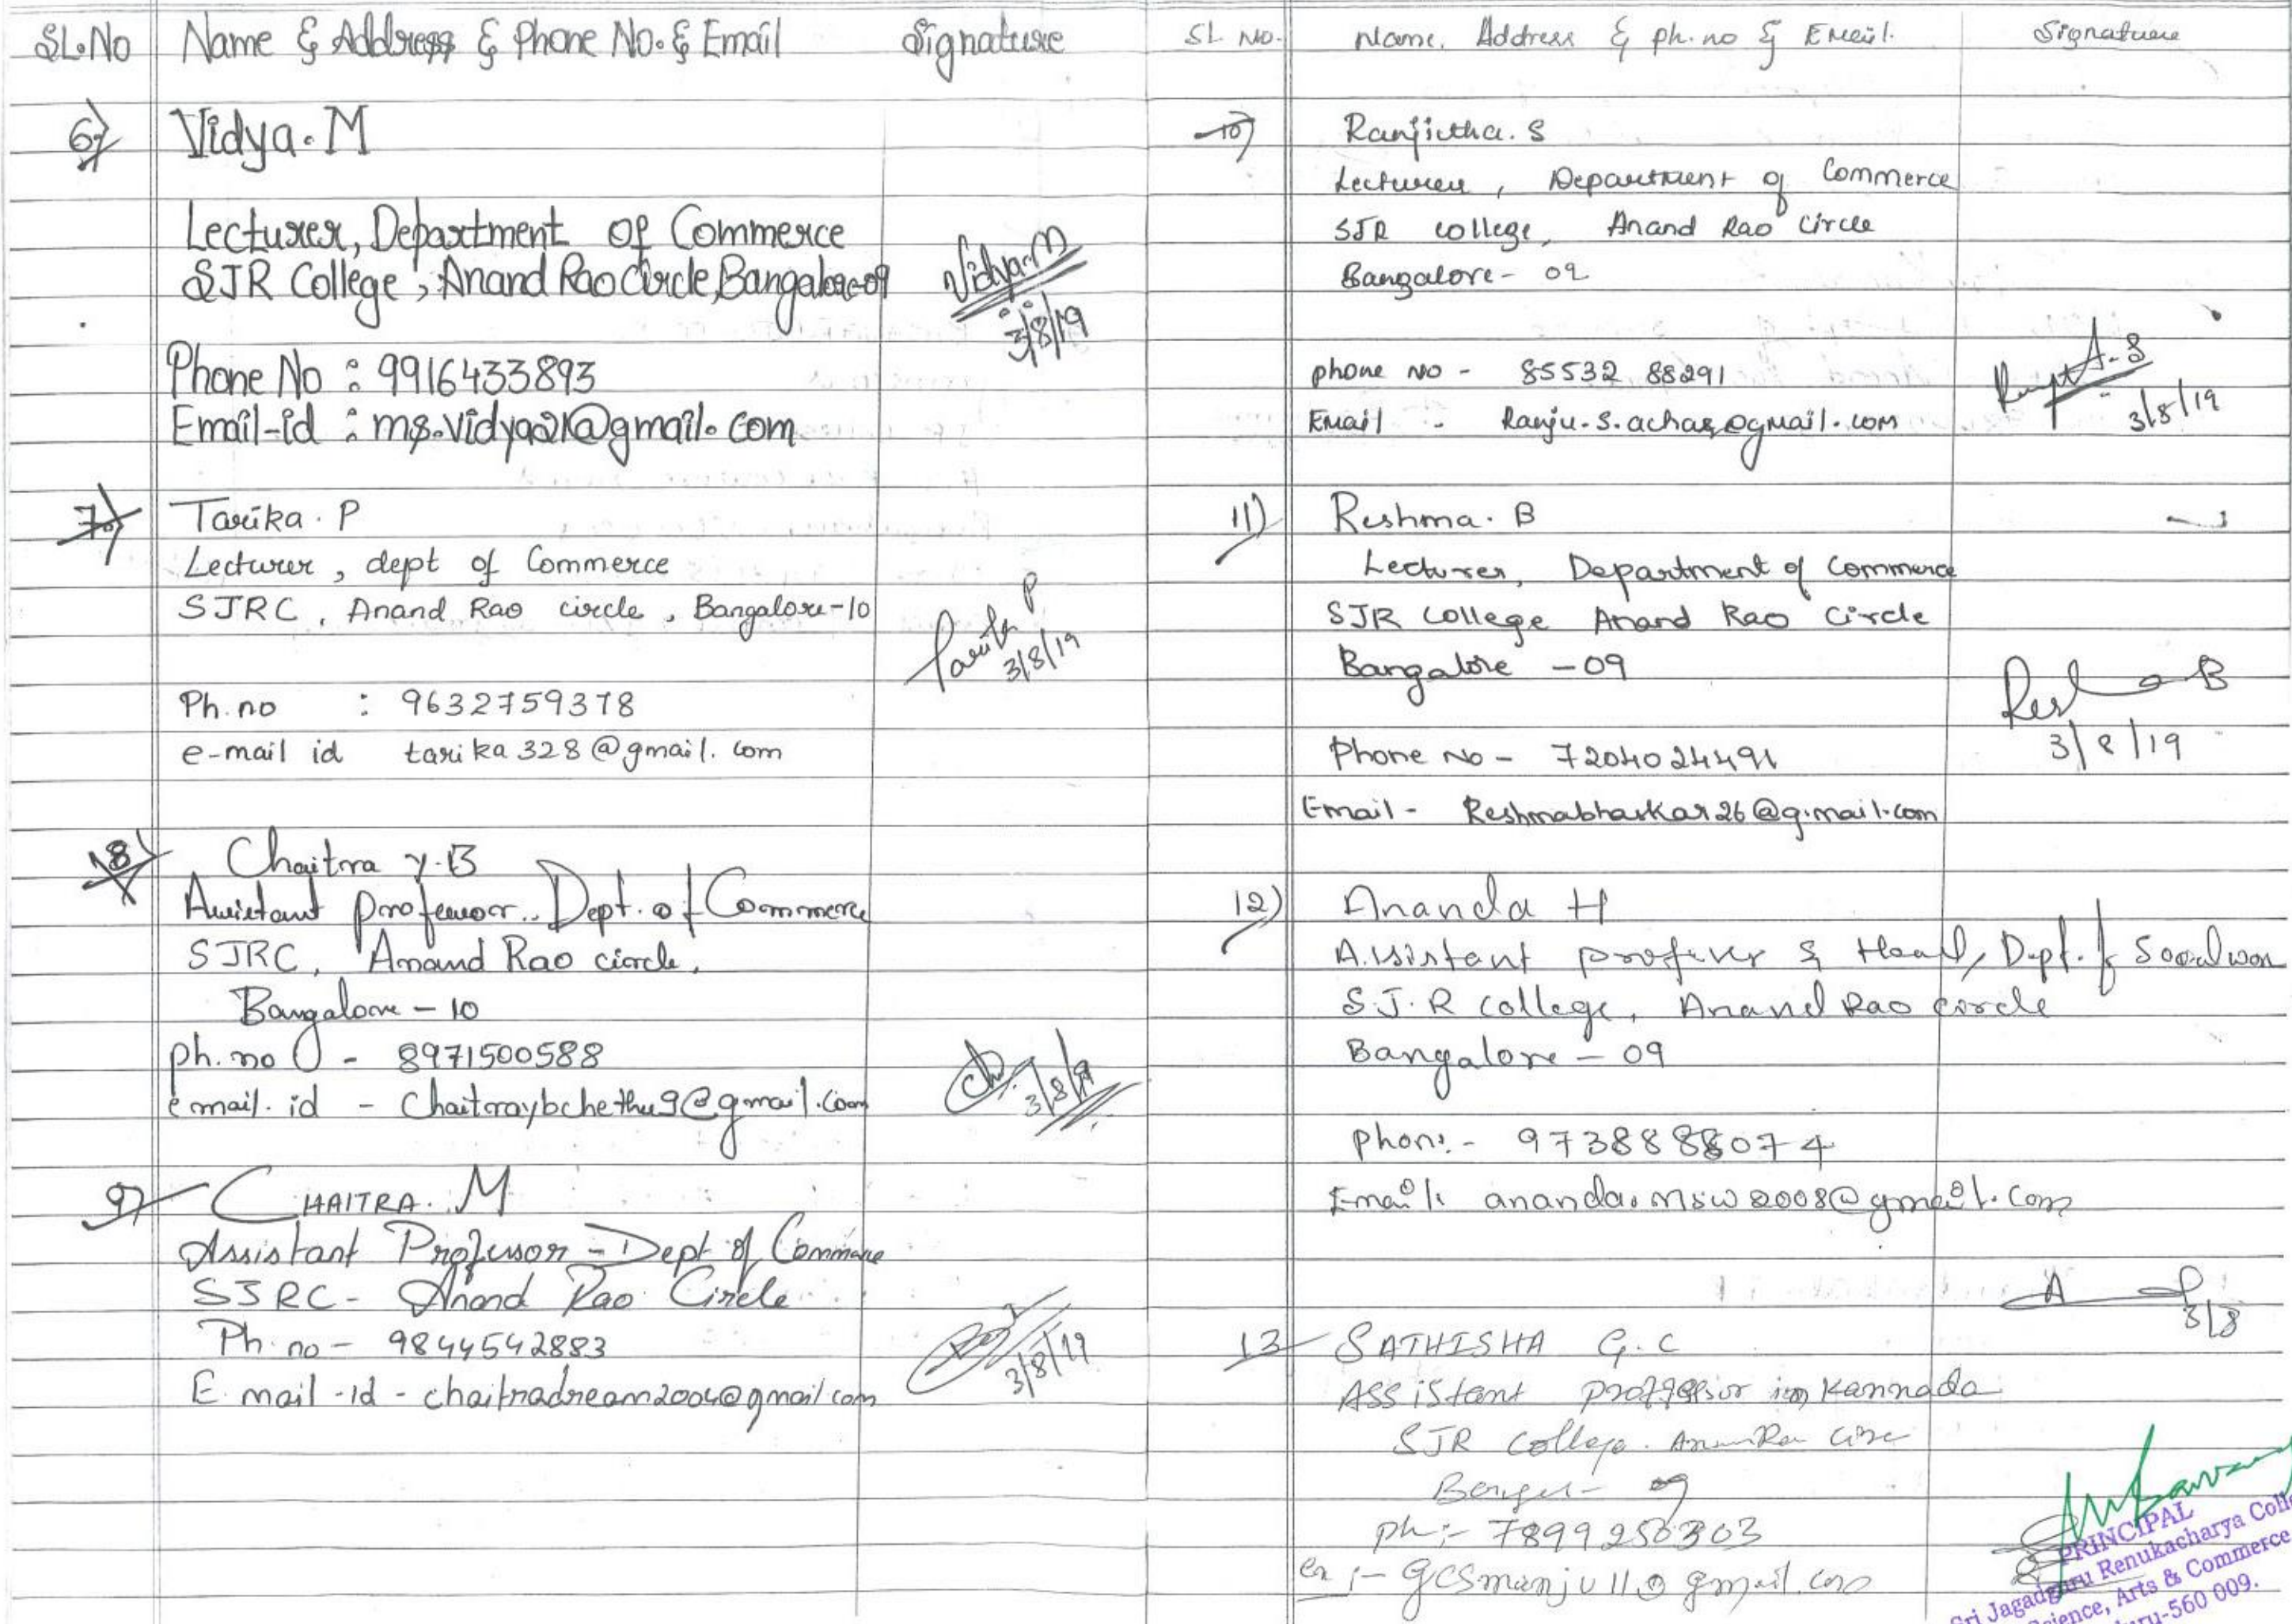 SL.No Name & Address & Phone No. & Email Signature
6) Vidya.M
Lecturer, Department of Commerce
SJR College, Anand Rao Circle, Bangalore-09
Vidya.M
3/8/19
Phone No : 9916433893
Email-id : ms.vidya21@gmail.com
7) Tarika. P
Lecturer, dept of Commerce
SJRC, Anand Rao circle, Bangalore-10
P
3/8/19
Ph.no : 9632759378
e-mail id tarika328@gmail.com
8) Chaitra Y.B
Assistant professor.. Dept. of Commerce
SJRC, Anand Rao circle,
Bangalore - 10
ph.no - 8971500588
email. id - Chaitraybchethu9@gmail.com
3/8/19
9) CHAITRA. M
Assistant Professor - Dept of Commerce
SJRC - Anand Rao Circle
Ph. no - 9844542883
3/8/19
E. mail -id - chaitradream2004@gmail.com
SL NO. Name, Address & ph. no & Email. Signature
10) Ranjitha. S
Lecturer, Department of Commerce
SJR college, Anand Rao circle
Bangalore - 09
phone no - 85532 88291
3/8/19
Email - Ranju.s.achar@gmail.com
11) Reshma. B
Lecturer, Department of Commerce
SJR College Anand Rao Circle
Bangalore - 09
B
Phone No - 7204024491
3/8/19
Email - Reshmabhaskar26@g.mail.com
12) Ananda H
Assistant professor & Head, Dept. of
S.J.R college, Anand Rao circle
Bangalore - 09
phone:- 9738888074
Email: ananda.msw2008@gmail.com
3/8
13 SATHISHA G.C
ASSistant proffessor in Kannada
SJR College.
09
ph:- 7899250303
gcsmanju11@gmail.com
PRINCIPAL
Sri Jagadguru Renukacharya Coll
Science, Arts & Commerce
560 009.